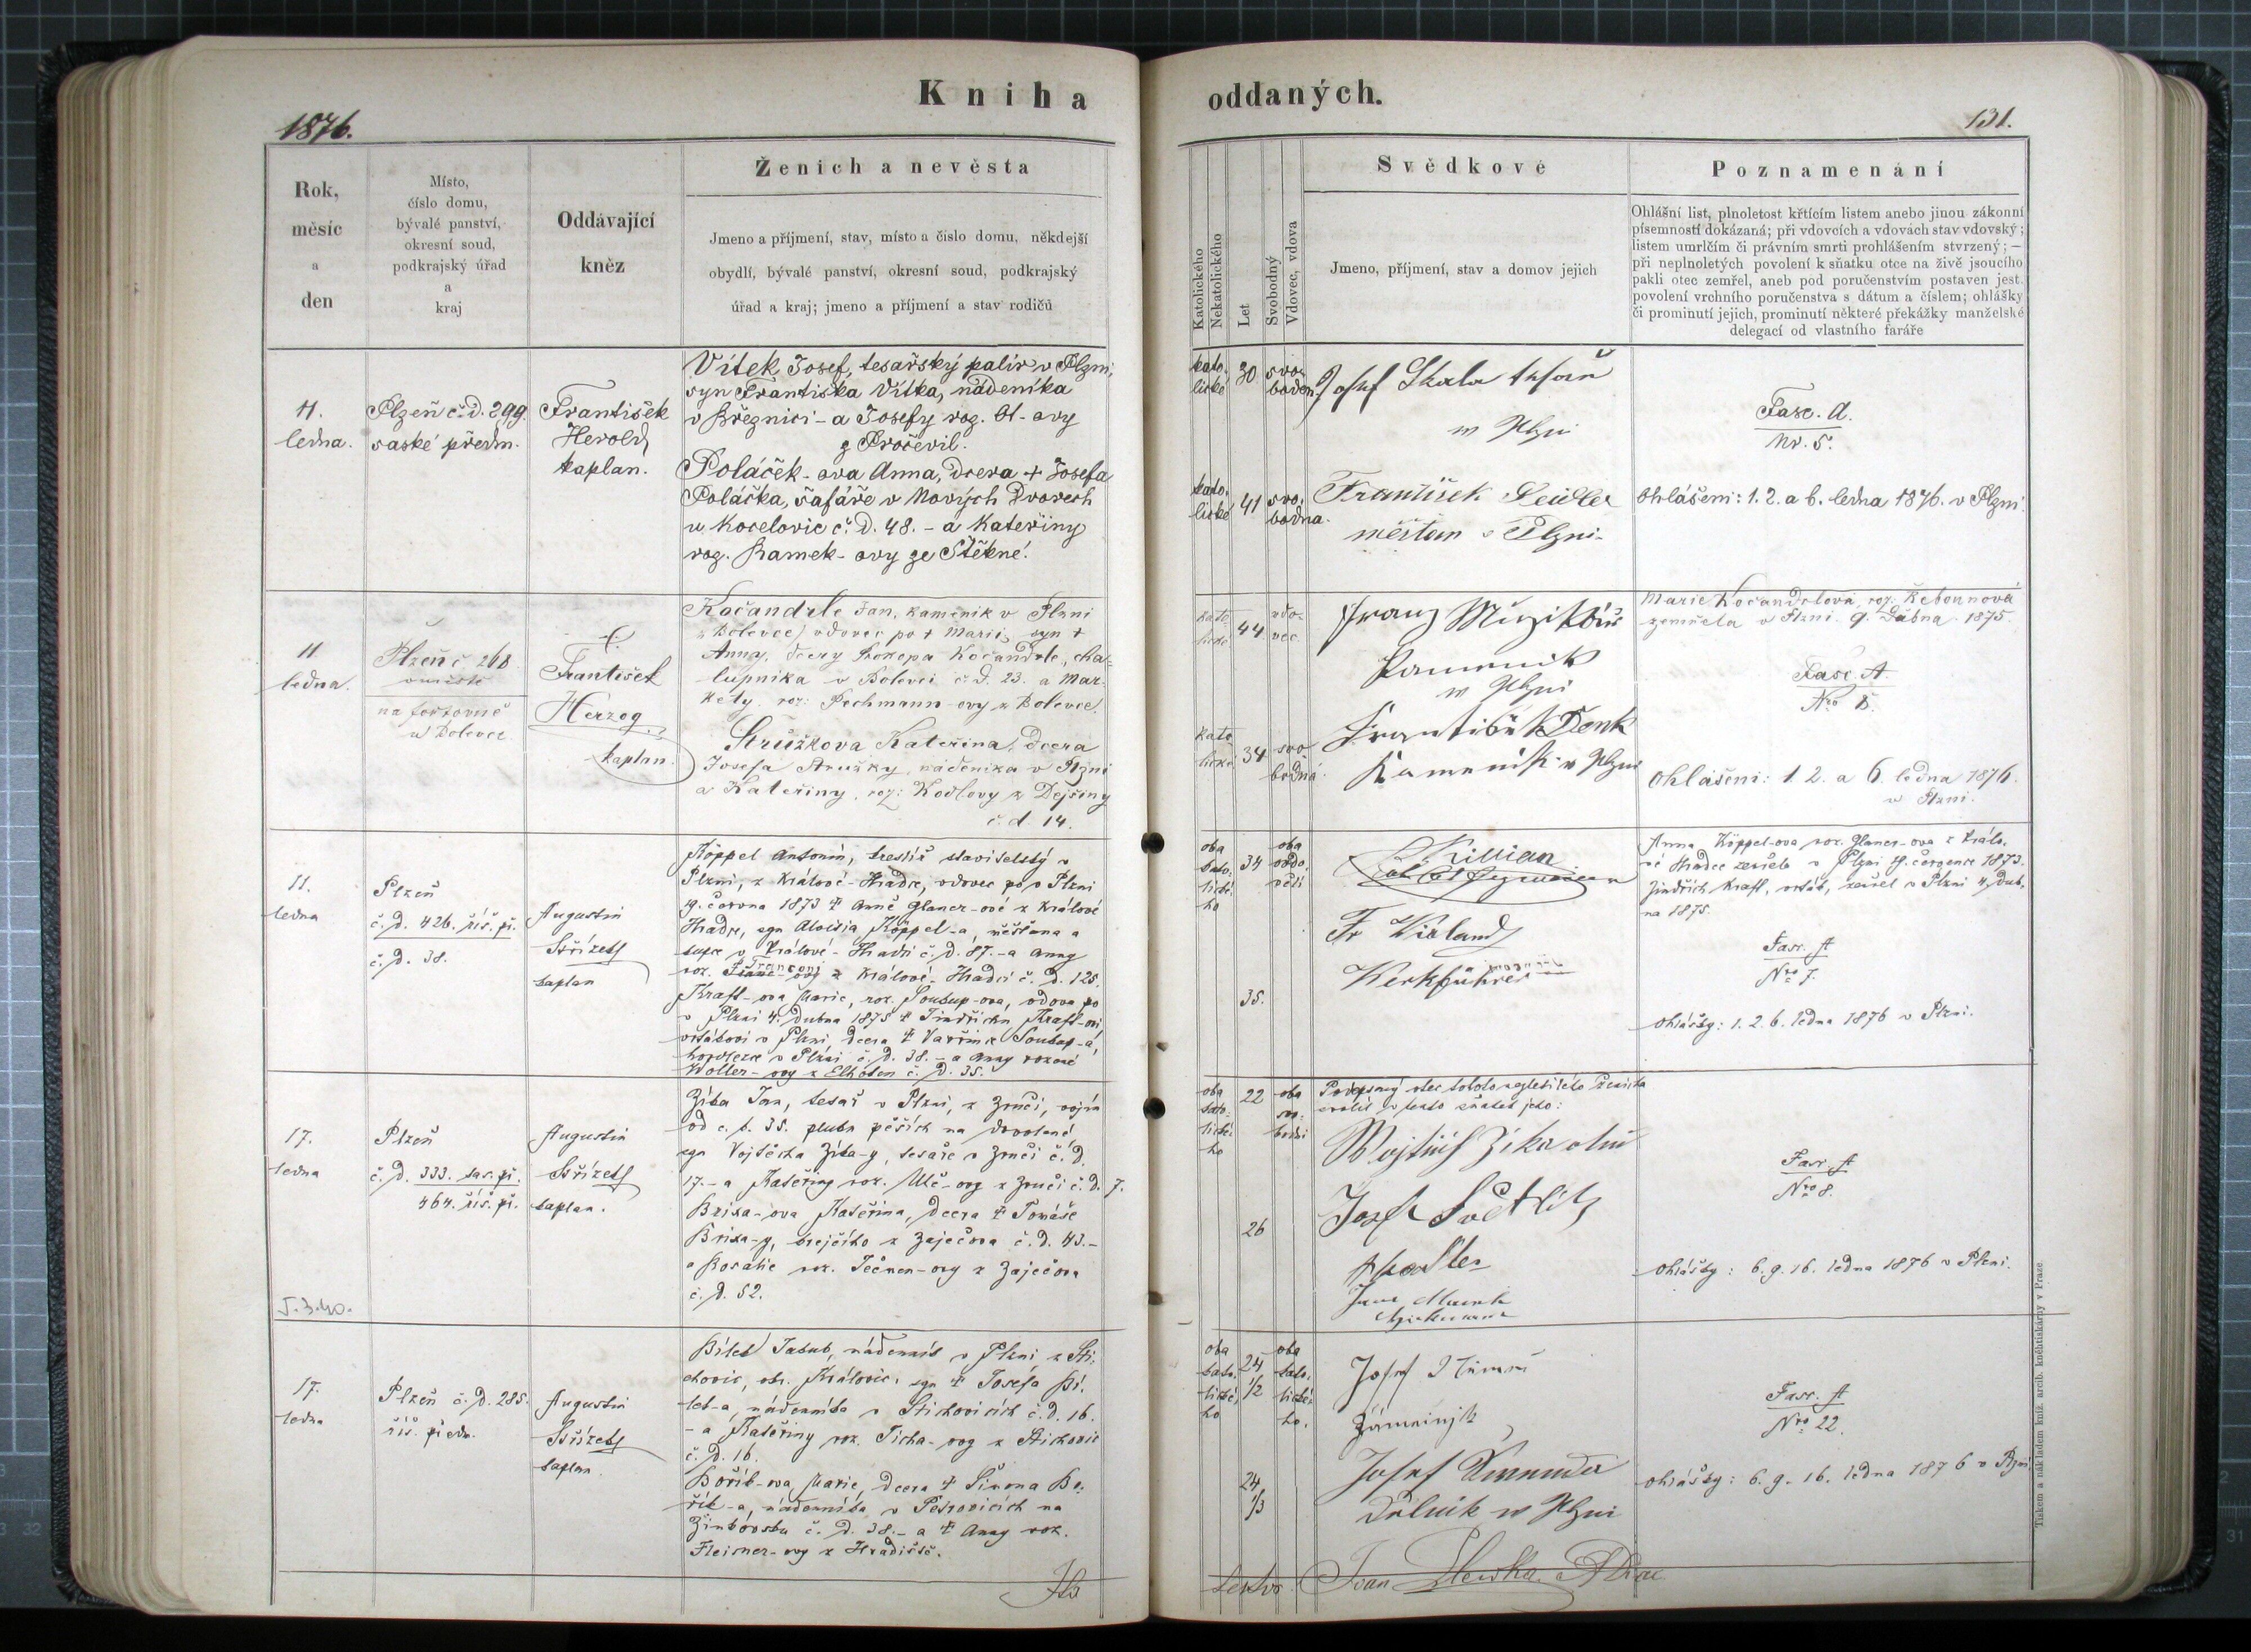 Kniha
oddaných.
1876.
131.
Rok,
měsíc
a
den
Místo,
číslo domu,
bývalé panství,
okresní soud,
podkrajský úřad
a
kraj
Oddávající
kněz
Ženich a nevěsta
Jmeno a příjmení, stav, místo a číslo domu, někdejší
obydlí, bývalé panství, okresní soud, podkrajský
úřad a kraj; jmeno a příjmení a stav rodičů
Katolického
Nekatolického
Let
Svobodný
Vdovec, vdova
Svědkové
Jmeno, příjmení, stav a domov jejich
Poznamenání
Ohlášní list, plnoletost křtícím listem anebo jinou zákonní
písemností dokázaná; při vdovcích a vdovách stav vdovský;
listem umrlčím či právním smrti prohlášením stvrzený; —
při neplnoletých povolení k sňatku otce na živě jsoucího
pakli otec zemřel, aneb pod poručenstvím postaven jest.
povolení vrchního poručenstva s dátum a číslem; ohlášky
či prominutí jejich, prominutí některé překážky manželské
delegací od vlastního faráře
11.
ledna.
Plzeň č.d. 299.
saské předm.
František
Herold
kaplan.
Vítek Josef, tesařský palír v Plzni,
syn Františka Vítka, nádeníka
v Březnici - a Josefy roz.
z
Poláček-ova Anna, dcera + Josefa
Poláčka, šafáře v Nových Dvorech
u Kocelovic č.d. 48. - a Kateřiny
roz. - ovy ze Štěkně.
kato-
lické
30
svo-
boden
Josef Skala tesař
w Plzni
kato-
lické
41
svo-
bodna.
František
měšťan v Plzni
Fasc. A.
Nr. 5.
Ohlášení: 1. 2. a 6. ledna 1876. v Plzni.
11
ledna.
Plzeň č 268
v městě
na
u Bolevce
František
Herzog
kaplan.
Kočandrle Jan, kameník v Plzni
z Bolevce) vdovec po + Marii, syn +
Anny, dcery Prokopa Kočandrle, cha-
lupníka v Bolevci č.d. 23. a Mar-
kéty, roz: Pechmann-ovy z Bolevce.
Stružkova Kateřina, dcera
Josefa Stružky, nádeníka v Plzni
a Kateřiny, roz: z Dejšiny
č.d. 14.
kato-
lické
44
vdo-
vec.
Franz
Kamenik
w Plzni
kato
lické
34
svo
bodná.
František Denk
Kamenik w Plzni
Marie Kočandrlová, roz:
zemřela v Plzni. 9. Dubna. 1875.
Fasc. A.
Nro
Ohlášení: 1 2. a 6. ledna 1876.
v Plzni.
11.
ledna
Plzeň
č.d. 426. říš. př.
č.d. 38.
Augustin
Střízek
kaplan
Köppel Antonín, kreslíř stavitelský v
Plzni, z Králové-Hradce, vdovec po v Plzni
19. června 1873 + Anně Glaner-ové z Králové
Hradce, syn Aloisia Köppel-a, měšťana a
kupce v Králové-Hradci č.d. 87. - a Anny
roz. z Králové-Hradce č.d. 125.
Kraft-ova Marie, roz. Soukup-ova, vdova po
v Plzni 4. dubna 1875 + Jindřichu Kraft-ovi,
v Plzni dcera + Soukup-a,
v Plzni č.d. 38. - a Anny rozené
Woller-ovy z č.d. 35.
oba
kato-
lické-
ho
34
oba
vdo-
vělí
35.
Killian
Fr Wieland
Werkführer
Anna Köppel-ova roz. Glaner-ova z Králo-
vé Hradce zemřela v Plzni 19. července 1873.
Jindřich Kraft, zemřel v Plzni 4. dub-
na 1875.
Fasc. A
Nro 7.
Ohlášky: 1. 2. 6. ledna 1876 v Plzni.
17.
ledna
Plzeň
č.d. 333. sas. př.
464. říš. př.
Augustin
Střízek
kaplan.
Zíka Jan, tesař v Plzni, z Zruči, vojín
od c. k. 35. pluku pěších na dovolené
syn Vojtěcha Zíka-y, tesaře v Zruči č.d.
17. - a Kateřiny roz. z Zruči č.d. 7.
Brixa-ova Kateřina, dcera + Tomáše
Brixa-y, krejčího z Zaječova č.d. 43. -
a Rosalie roz. z Zaječova
č.d. 52.
5.3.40.
oba
kato-
lické-
ho
22
oba
svo-
bodni
26
Podepsaný otec nezletilého ženicha
svolil v tento sňatek jeho:
Josef
Fasc. A
Nro 8.
Ohlášky: 6. 9. 16. ledna 1876 v Plzni.
17.
ledna
Plzeň č.d. 285.
říš. předm.
Augustin
Střízek
kaplan.
Bílek Jakub, nádenník v Plzni z Sti-
chovic, okr. Kralovic, syn + Josefa Bí-
lek-a, nádenníka v Stichovicích č.d. 16.
- a Kateřiny roz. Ticha-ovy z Stichovic
č.d. 16.
Bořík-ova Marie, dcera + Šimona Bo-
řík-a, nádenníka v Petrovicích na
Žinkovsku č.d. 38. - a + Anny roz.
Fleisner-ovy z Hradiště.
oba
kato-
lické-
ho
24
1/2
oba
kato-
lické-
ho.
24
1/3
Josef
Josef
Dělník w Plzni
Fasc. A
Nro 22.
Ohlášky: 6. 9. 16. ledna 1876 v Plzni.
Tiskem a nákladem kníž. arcib. kněhtiskárny v Praze.